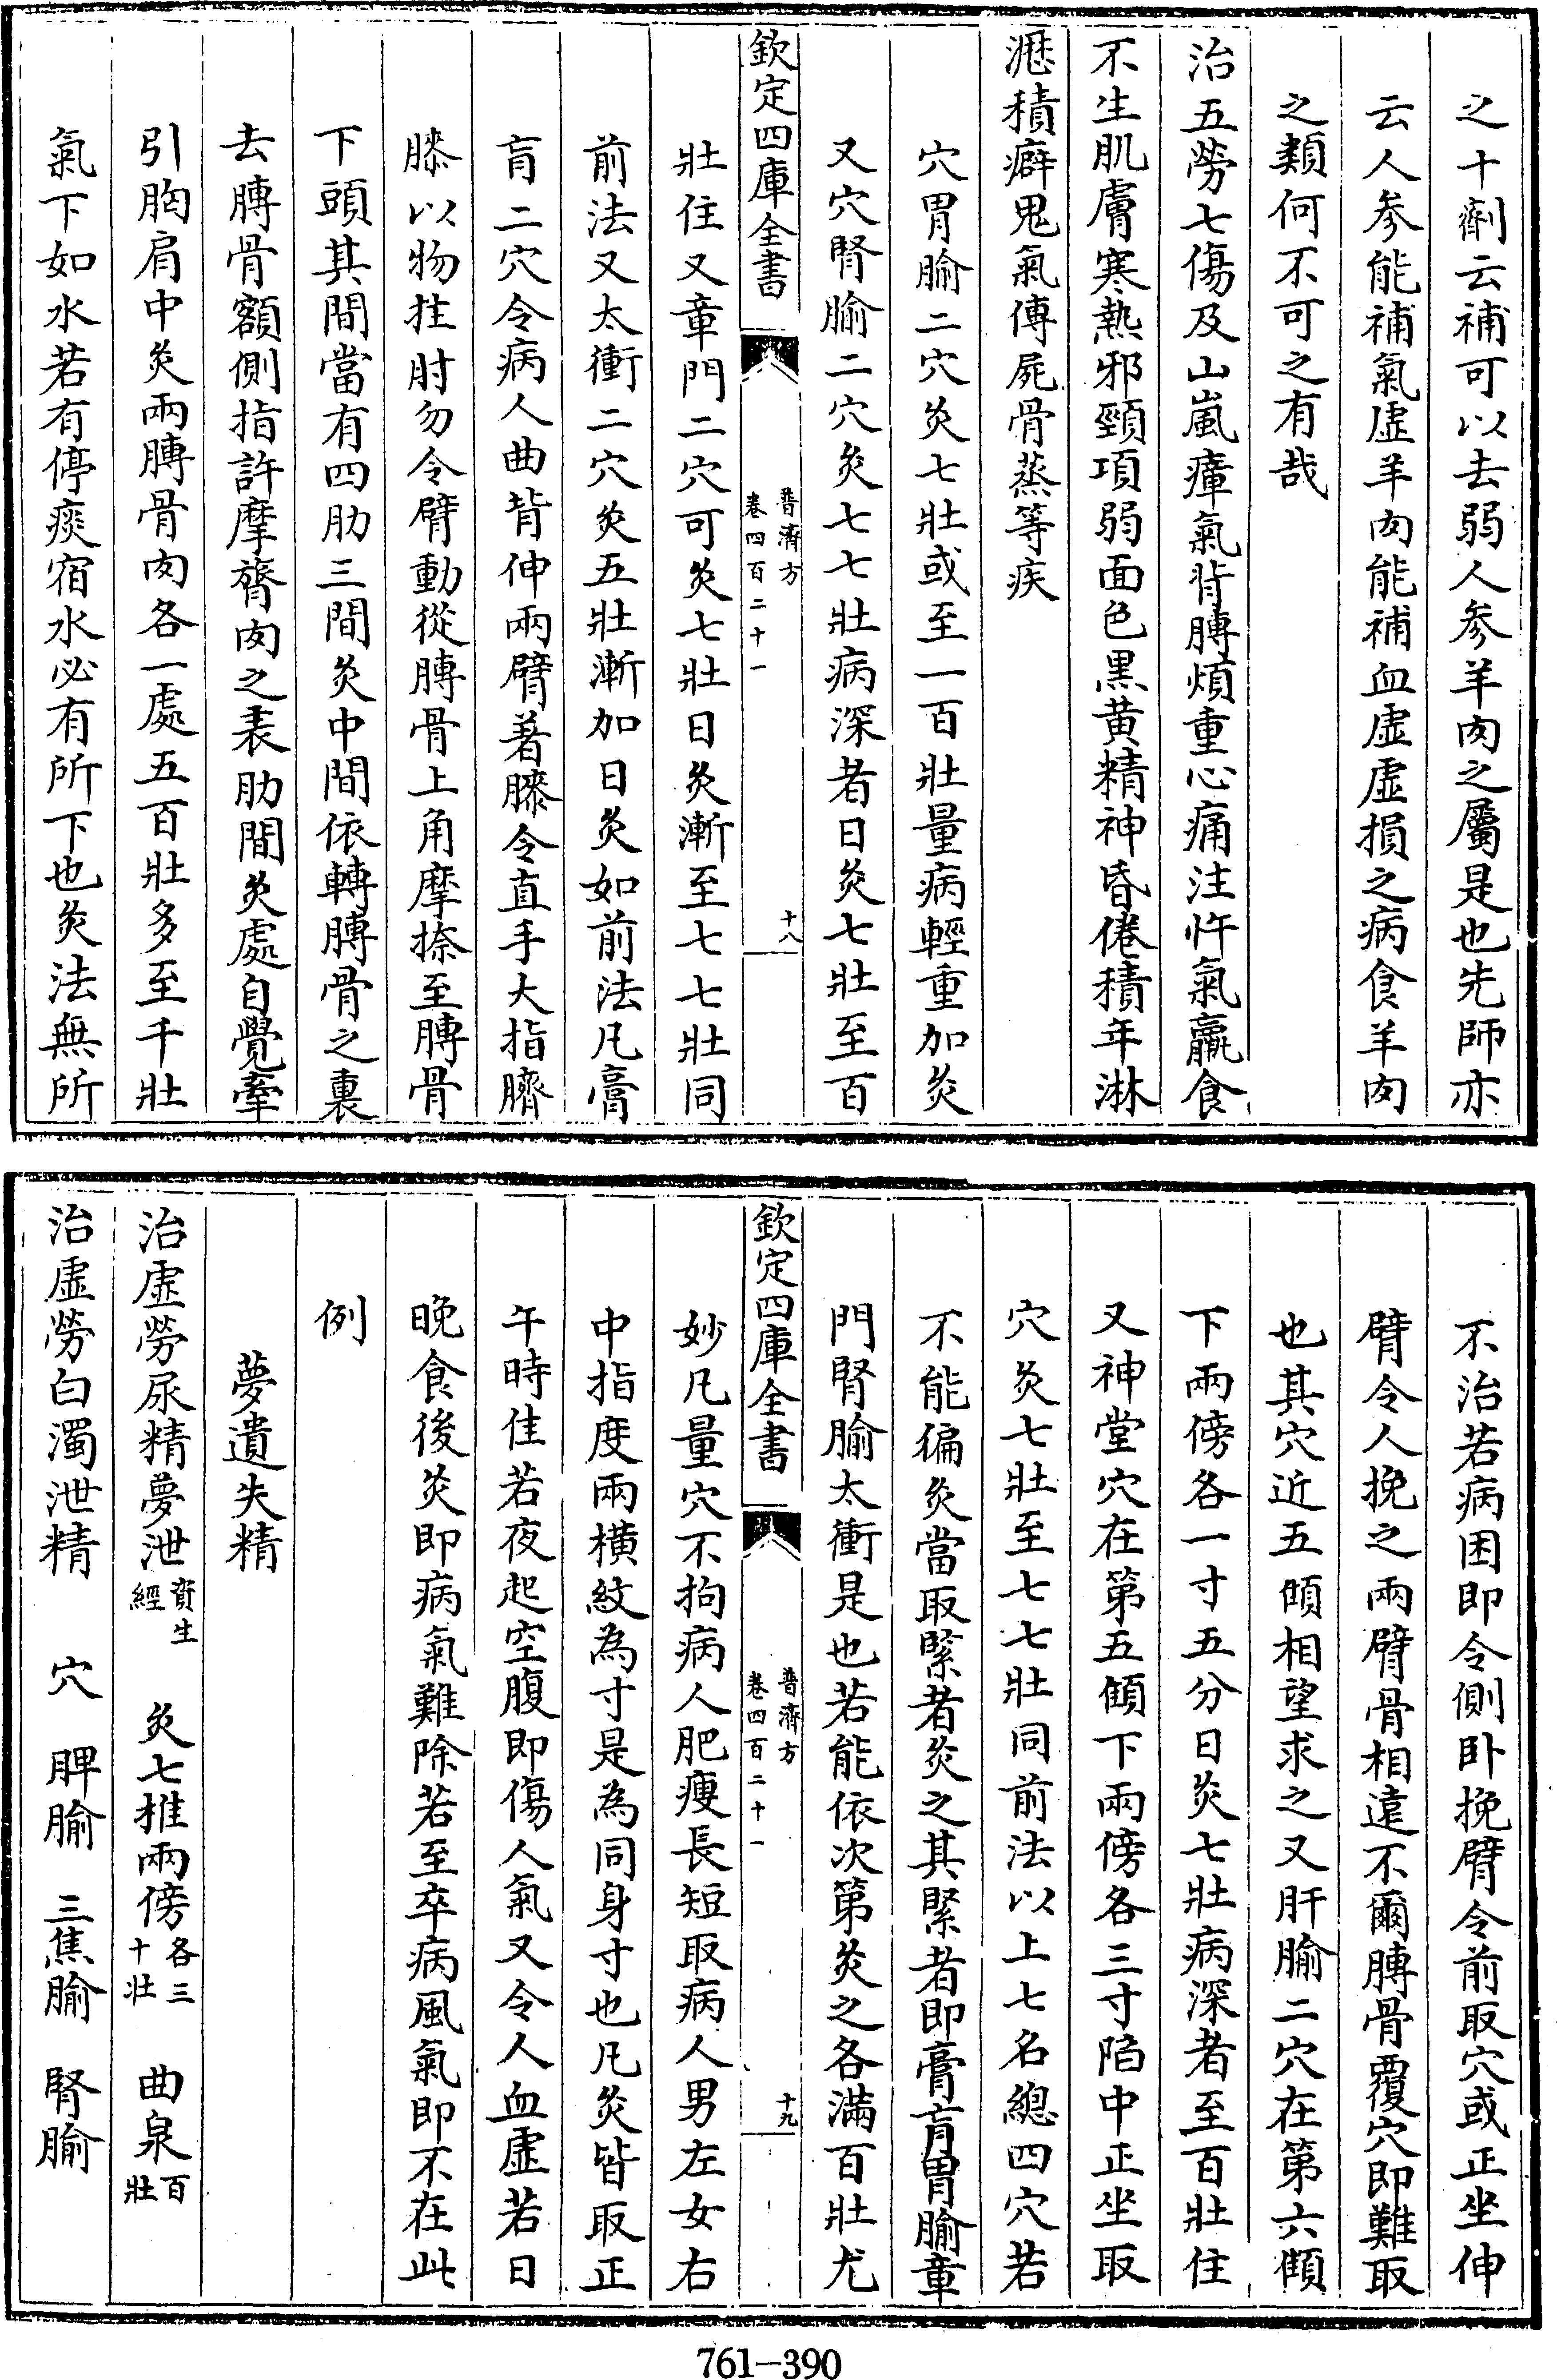 之十劑云補可以去弱人參羊肉之屬是也先師亦
云人參能補氣虛羊肉能補血虛虛損之病食羊肉
之類何不可之有哉
治五勞七傷及山嵐瘴氣背膊煩重心痛注忤氣羸食
不生肌膚寒熱邪頸項弱面色黒黄精神昏倦積年淋
瀝積癖鬼氣傳屍骨蒸等疾
穴胃腧二穴灸七壯或至一百壯量病輕重加灸
又穴腎腧二穴灸七七壯病深者日灸七壯至百
欽定四庫全書
普濟方
卷四百二十一
十八
壯住又章門二穴可灸七壯日灸漸至七七壯同
前法又太衝二穴灸五壯漸加日灸如前法凡膏
肓二穴令病人曲背伸兩臂著膝令直手大指臍
膝以物拄肘勿令臂動從膊骨上角摩捺至膊骨
下頭其間當有四肋三間灸中間依轉膊骨之裏
去膊骨額側指許摩膂肉之表肋間灸處自覺牽
引胸肩中灸兩膊骨肉各一處五百壯多至千壯
氣下如水若有停痰宿水必有所下也灸法無所
不治若病困即令側卧挽臂令前取穴或正坐伸
臂令人挽之兩臂骨相逺不爾膊骨覆穴即難取
也其穴近五傾相望求之又肝腧二穴在第六顀
下兩傍各一寸五分日灸七壯病深者至百壯住
又神堂穴在第五傾下兩傍各三寸陷中正坐取
穴灸七壯至七七壯同前法以上七名總四穴若
不能徧灸當取緊者灸之其緊者即膏肓胃腧章
門腎腧太衝是也若能依次第灸之各滿百壯尤
欽定四庫全書
普濟方
卷四百二十一
十九
妙凡量穴不拘病人肥瘦長短取病人男左女右
中指度兩橫紋為寸是為同身寸也凡灸皆取正
午時佳若夜起空腹即傷人氣又令人血虛若日
晚食後灸即病氣難除若至卒病風氣即不在此
例
夢遺失精
治虛勞尿精夢泄資生經 灸七椎兩傍各三十壯 曲泉百壯
治虛勞白濁泄精 穴 脾腧 三焦腧 腎腧
761-390